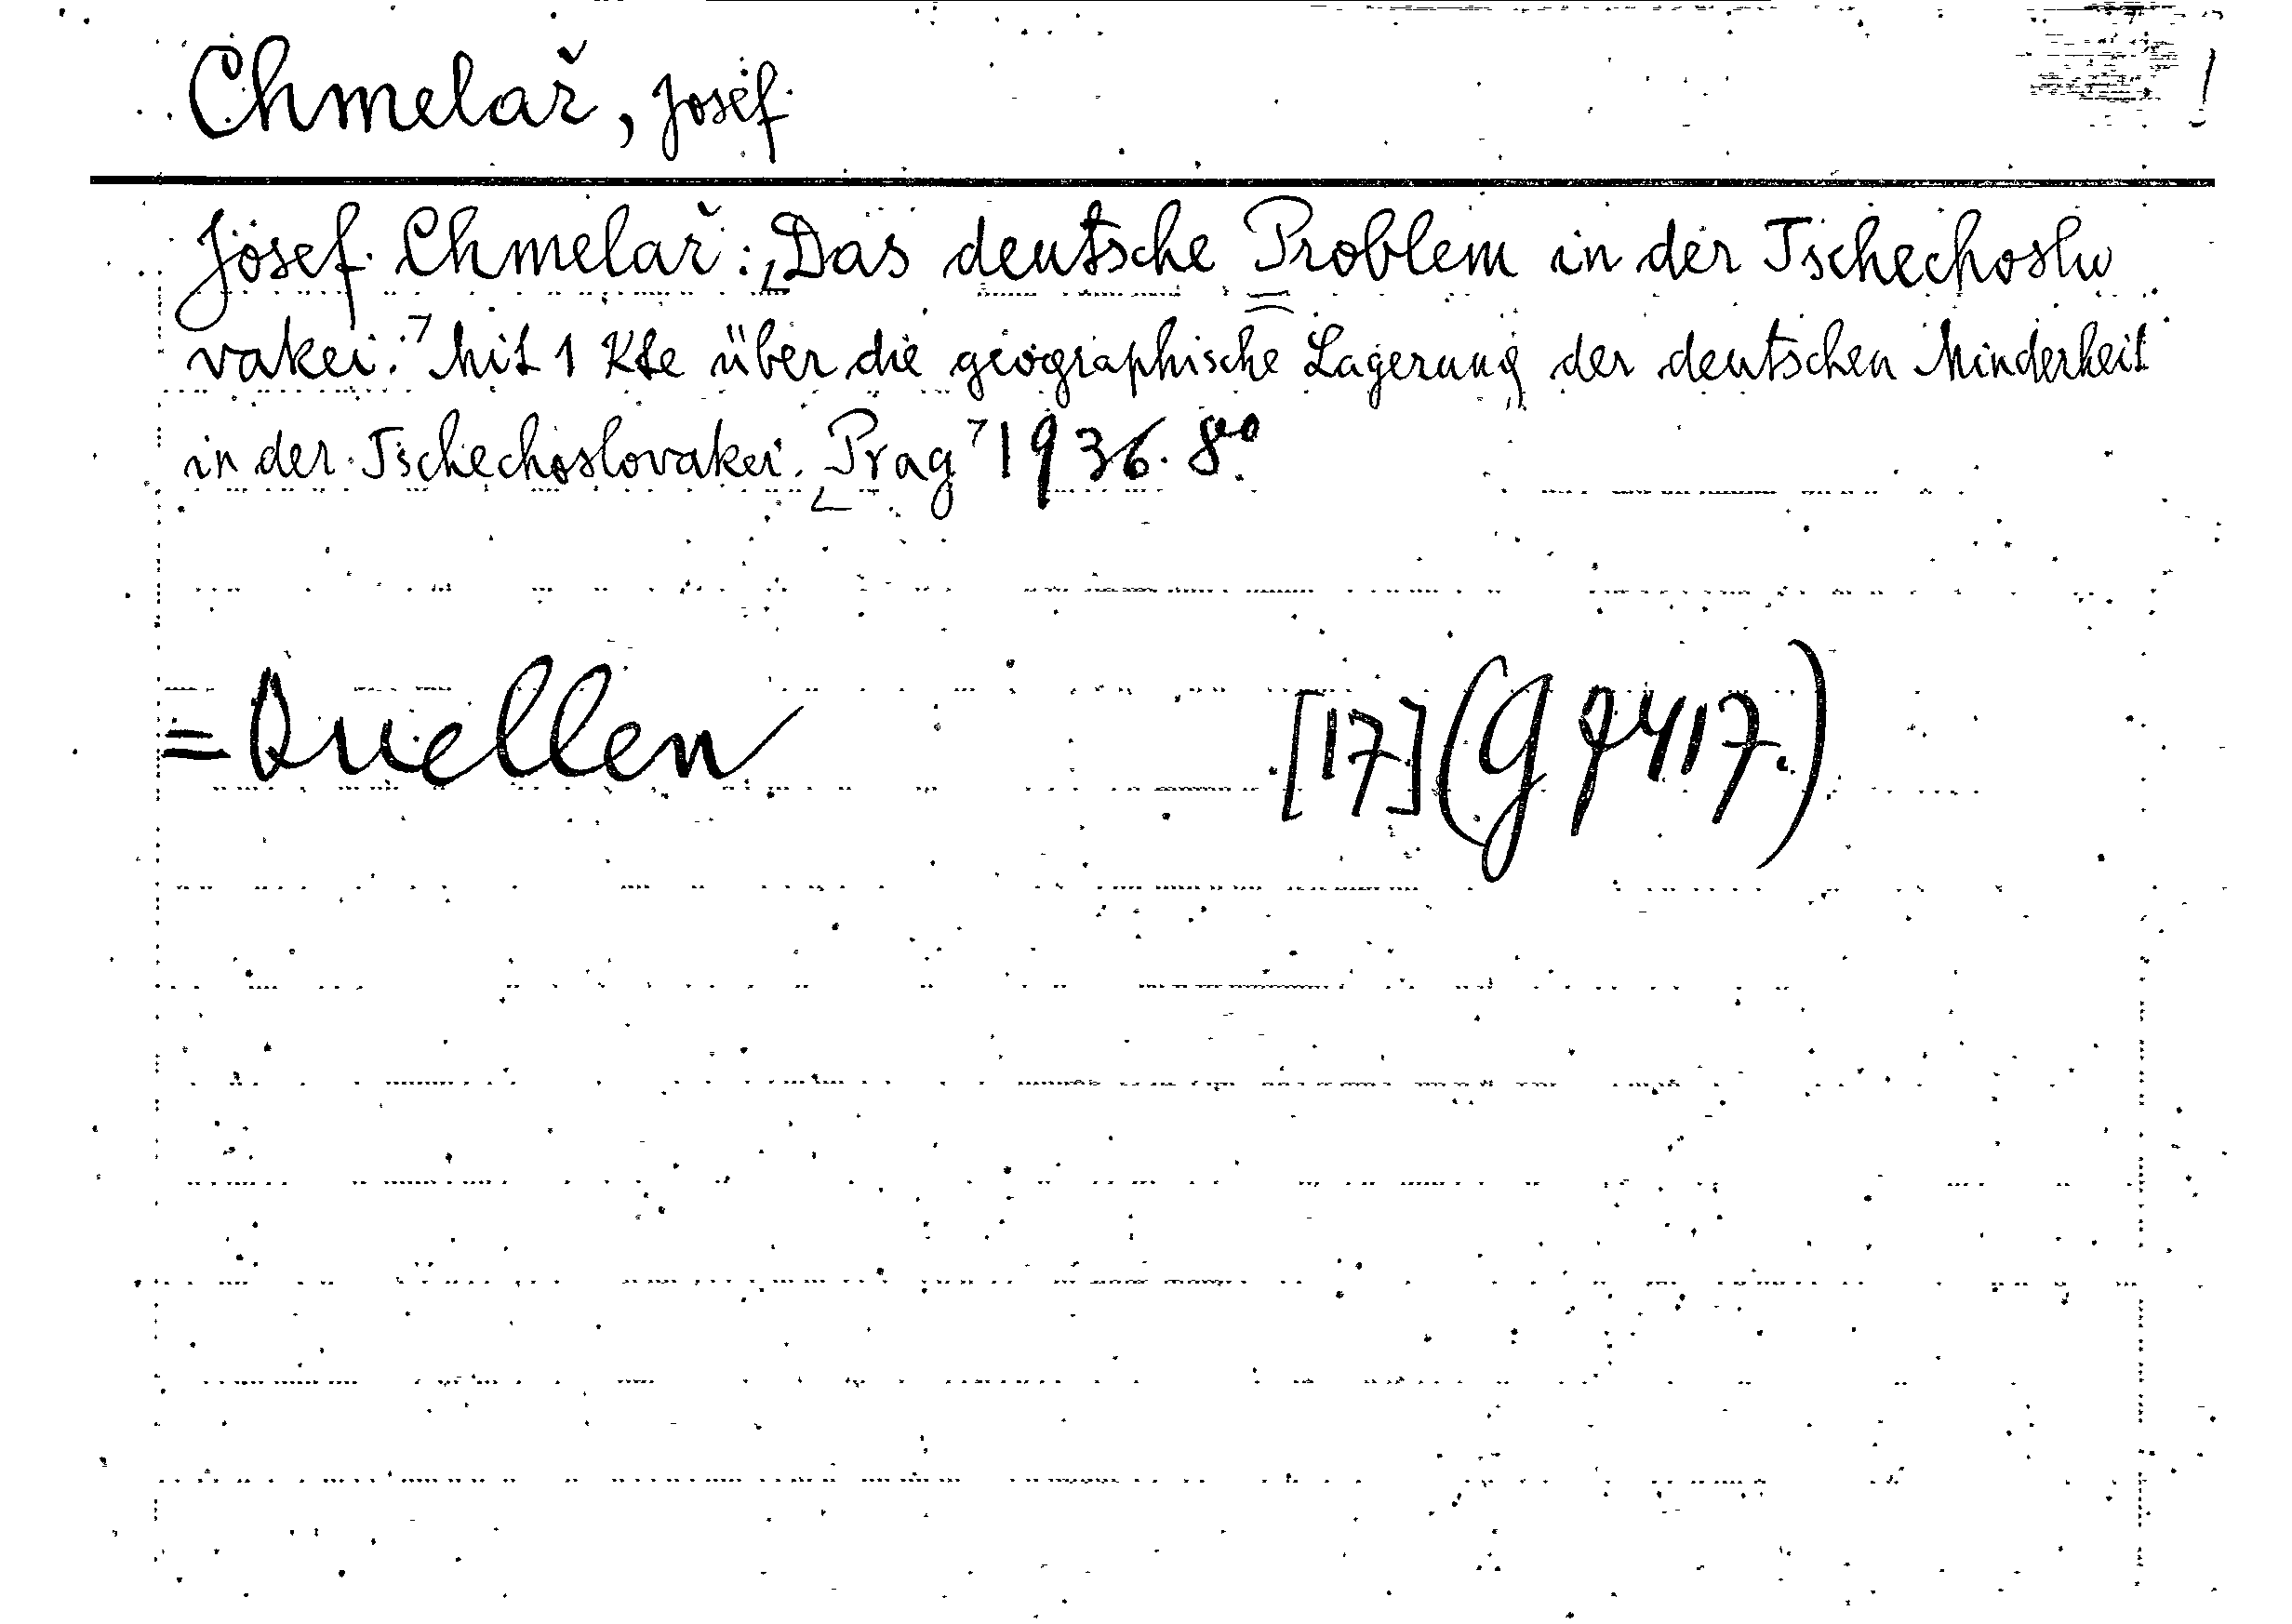 Chmelař, Josef
Josef Chmelař: Das deutsche Problem in der Tschechoslo
vakei. Mit 1 Kte über die geographische Lagerung der deutschen Minderheit
in der Tschechoslovakei. Prag 1936. 8°
= Quellen [17] (G 7417.)